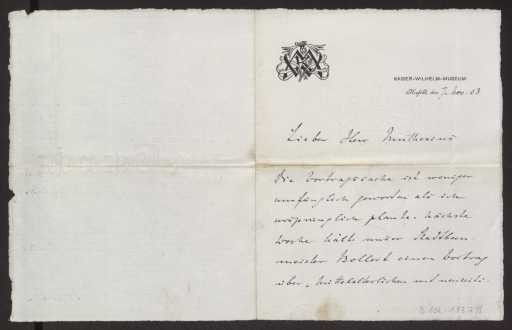 KAISER-WILHELM-MUSEUM
Crefeld, den 7. Nov. 03
Lieber Herr Muthesius
Die Vortragssache ist weniger
umfänglich geworden als ich
ursprünglich plante. Nächste
Woche hält unser Stadtbau-
meister einen Vortrag
über mittelalterlichen und neuzeitl.